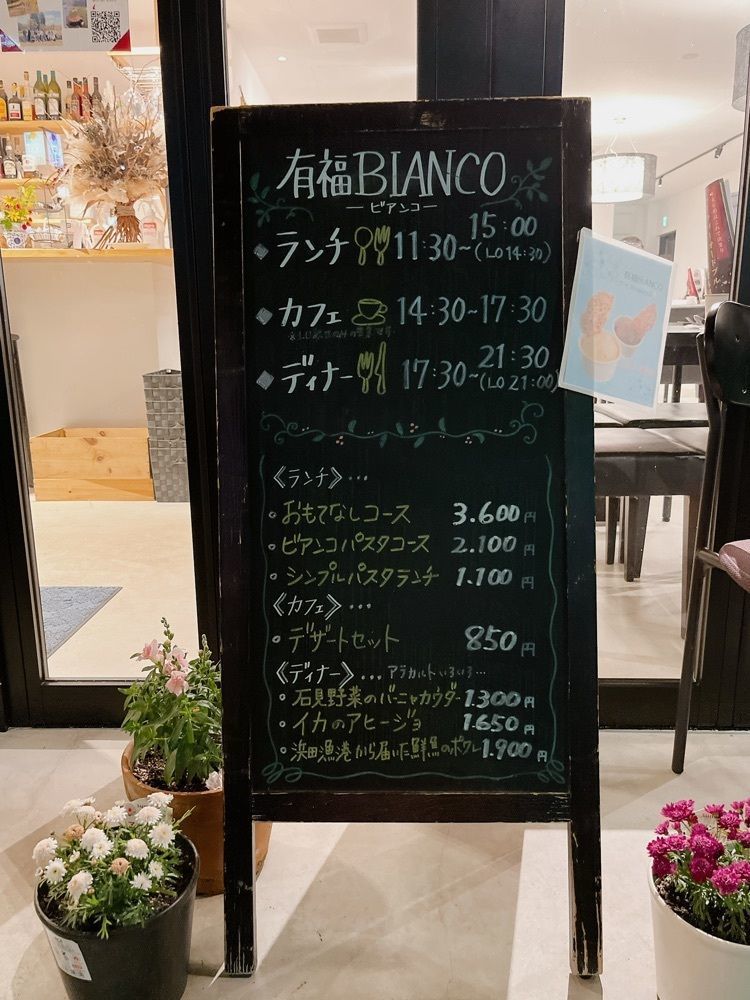 有福BIANCO
ービアンコー
ランチ 11:30~15:00
(LO 14:30)
カフェ 14:30~17:30
ディナー 17:30~21:30
(LO 21:00)
《ランチ》…
おもてなしコース 3.600円
ビアンコパスタコース 2.100円
シンプルパスタランチ 1.100円
《カフェ》…
デザートセット 850円
《ディナー》… アラカルトいろいろ…
石見野菜のバーニャカウダー 1.300円
イカのアヒージョ 1.650円
浜田漁港から届いた鮮魚のポワレ 1.900円